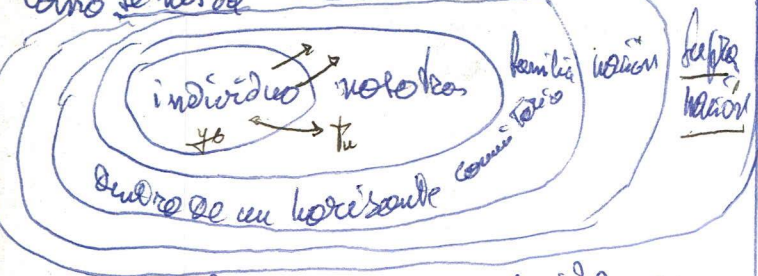 como se
individuo nosotros familia nación Supra nación
yo tu
dentro de un horisonte comunitario